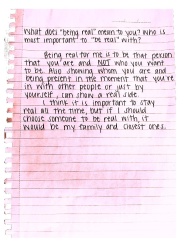 What does "being real" mean to you? Who is
most important to "be real" with?
Being real for me is to be that person
that you are and NOT who you want
to be. Also showing whom you are and
being present in the moment that you're
in with other people or just by
yourself, can show a real side.
I think it is important to stay
real all the time, but if I should
choose someone to be real with, it
would be my family and closest ones.